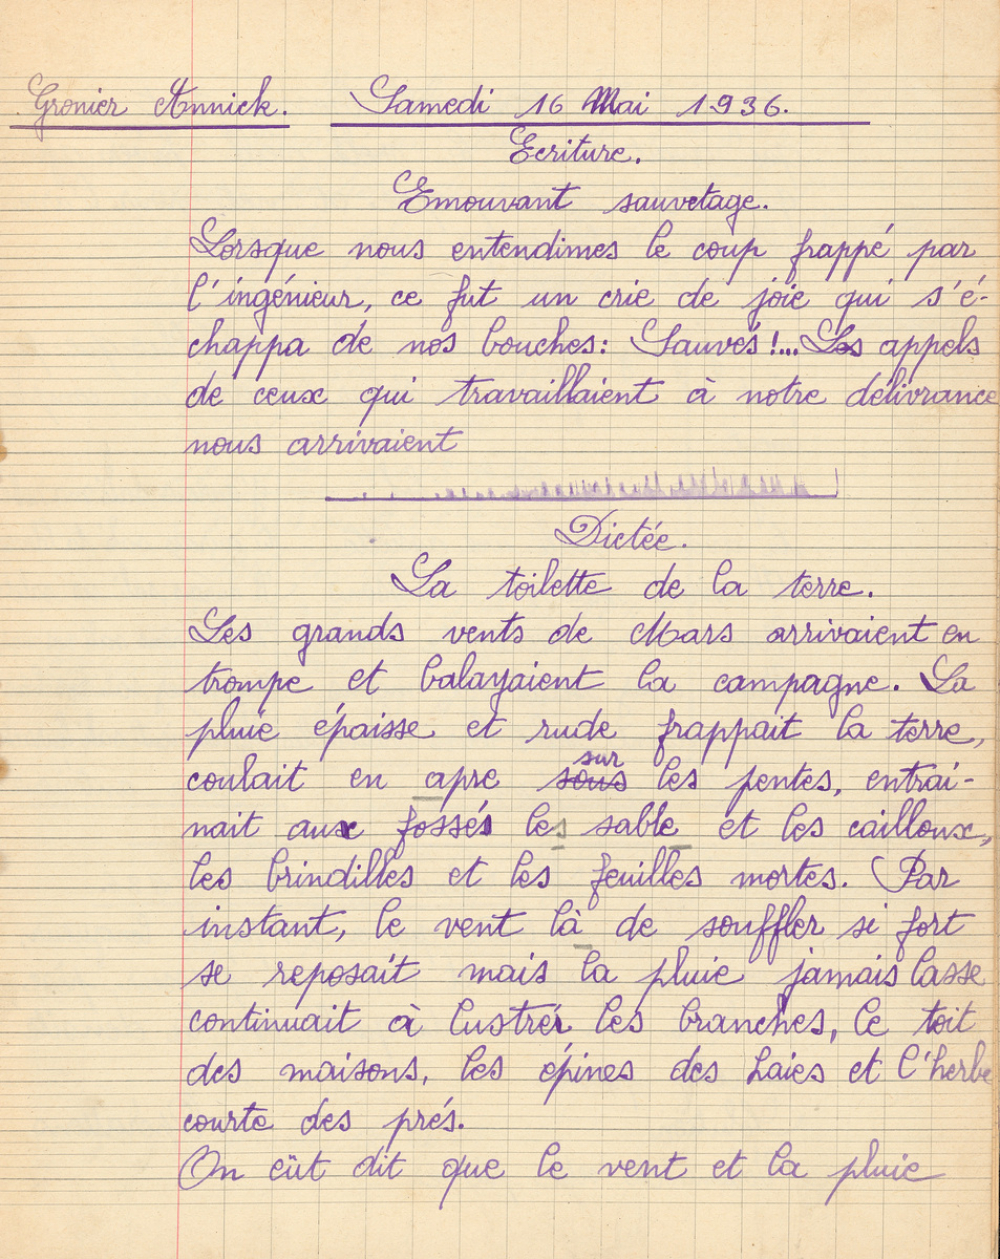 Gronier Annick. Samedi 16 Mai 1936.
Ecriture.
Emouvant sauvetage.
Lorsque nous entendimes le coup frappé par
l'ingénieur, ce fut un crie de joie qui s'é-
chappa de nos bouches: Sauvés!... Les appels
de ceux qui travaillaient à notre délivrance
nous arrivaient
Dictée.
La toilette de la terre.
Les grands vents de Mars arrivaient en
trompe et balayaient la campagne. La
pluie épaisse et rude frappait la terre,
sur
coulait en apre sous les pentes, entrai-
nait aux fossés les sable et les cailloux,
les brindilles et les feuilles mortes. Par
instant, le vent là de souffler si fort
se reposait mais la pluie jamais lasse
continuait à lustrer les branches, le toit
des maisons, les épines des haies et l'herbe
courte des prés.
On eût dit que le vent et la pluie